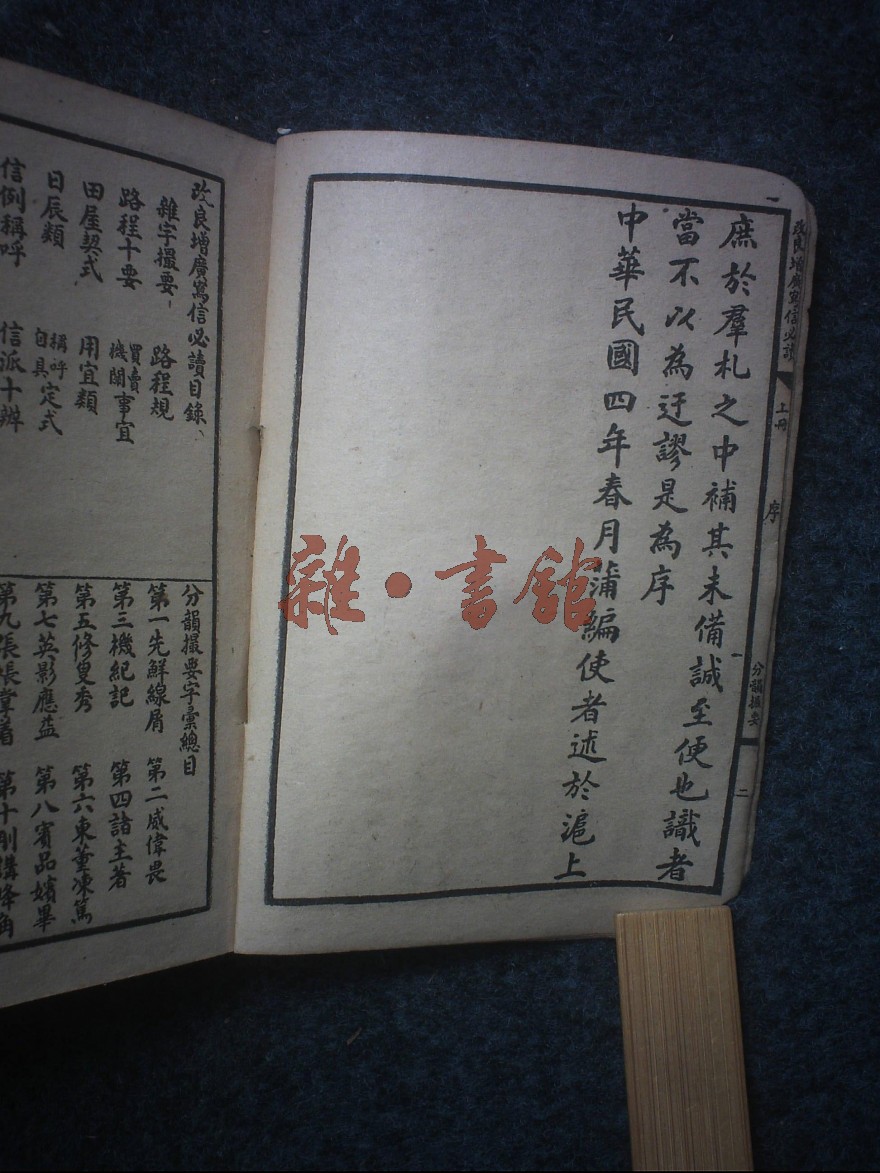 改良增廣寫信必讀
上冊
序
分韻撮要
二
庶於羣札之中補其未備誠至便也識者
當不以為迂謬是為序
中華民國四年春月蒲編使者述於滬上
改良增廣寫信必讀目錄
雜字撮要 路程規
路程十要 買賣機關事宜
田屋契式 用宜類
日辰類 稱呼自具定式
信例稱呼 信派十辦
分韻撮要字彙總目
第一先鮮線屑 第二威偉畏
第三機紀記 第四諸主著
第五修叟秀 第六東董凍篤
第七英影應益 第八賓品嬪畢
第九張長掌着 第十剛講降角
雜·書館